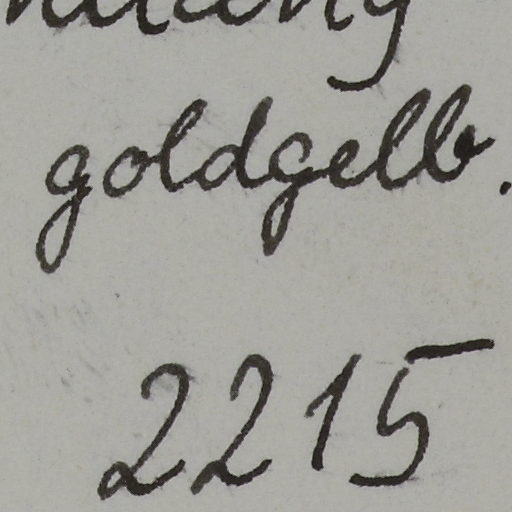 goldgelb.
2215